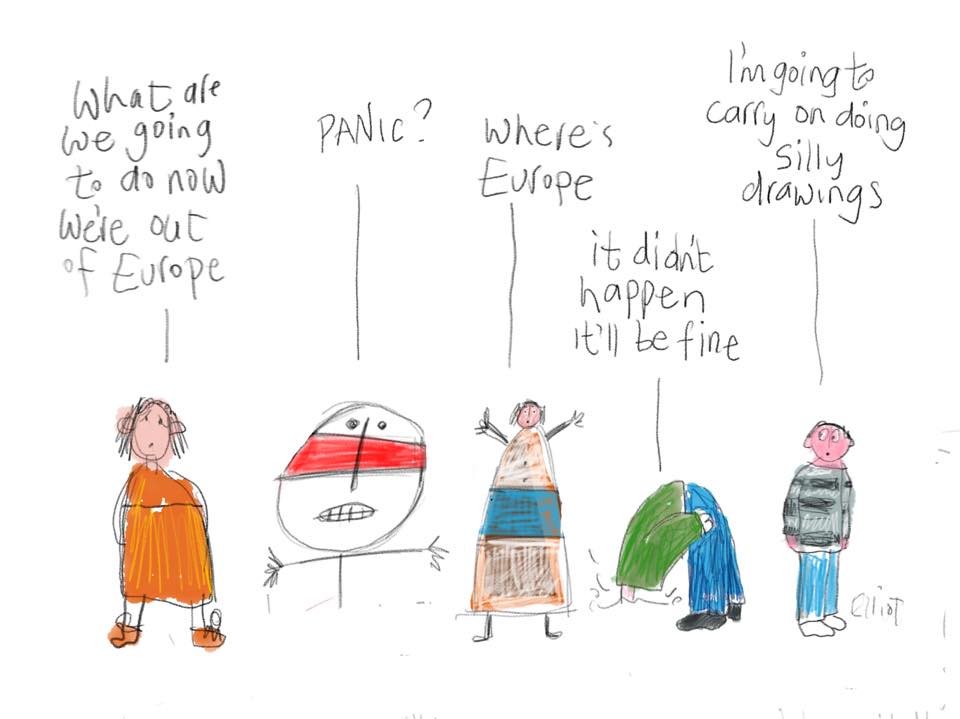 What are
we going
to do now
we're out
of Europe
PANIC?
where's
Europe
it didn't
happen
it'll be fine
I'm going to
carry on doing
silly
drawings
elliot